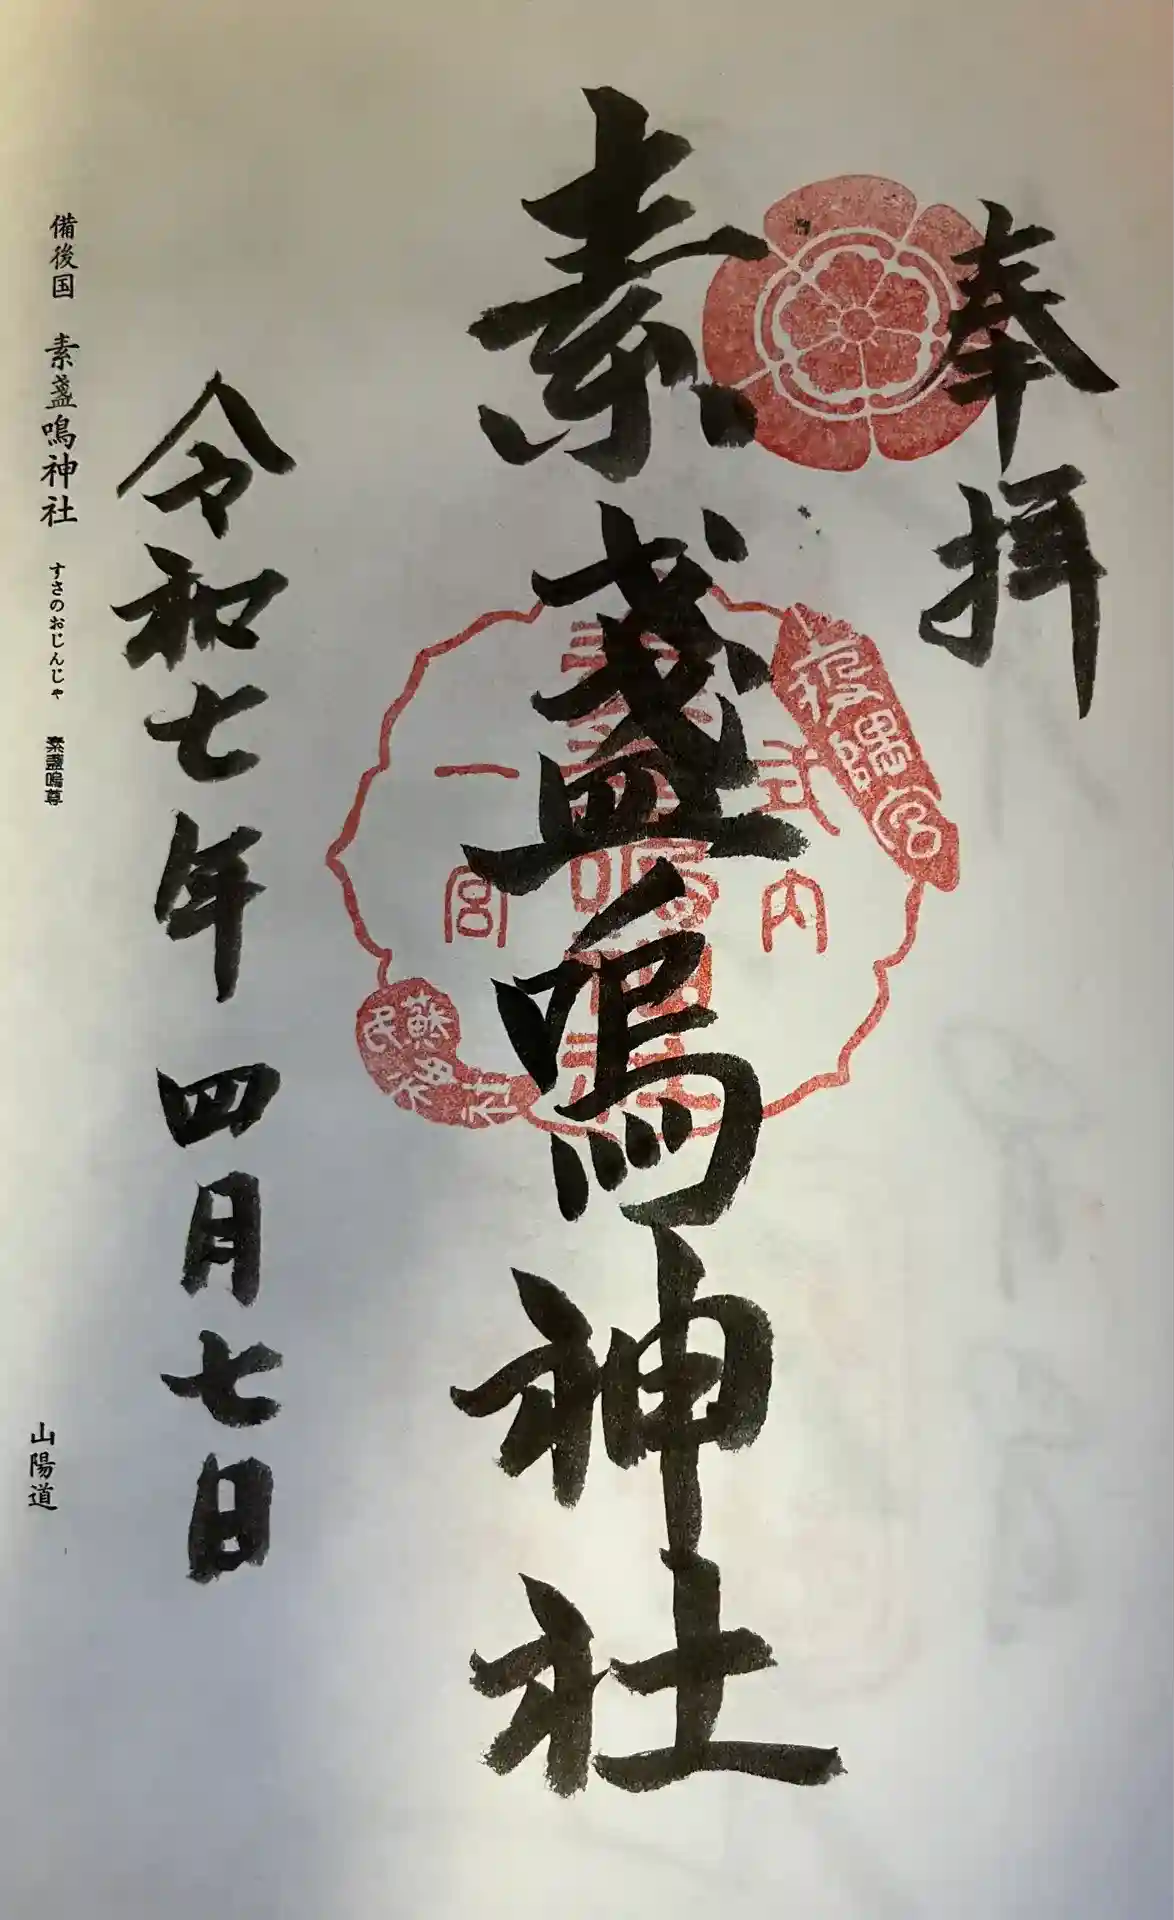 奉拝
素盞嗚神社
式内
一宮
疫隅宮
蘇民神社
令和七年 四月七日
備後国 素盞嗚神社 すさのおじんじゃ 素盞嗚尊
山陽道